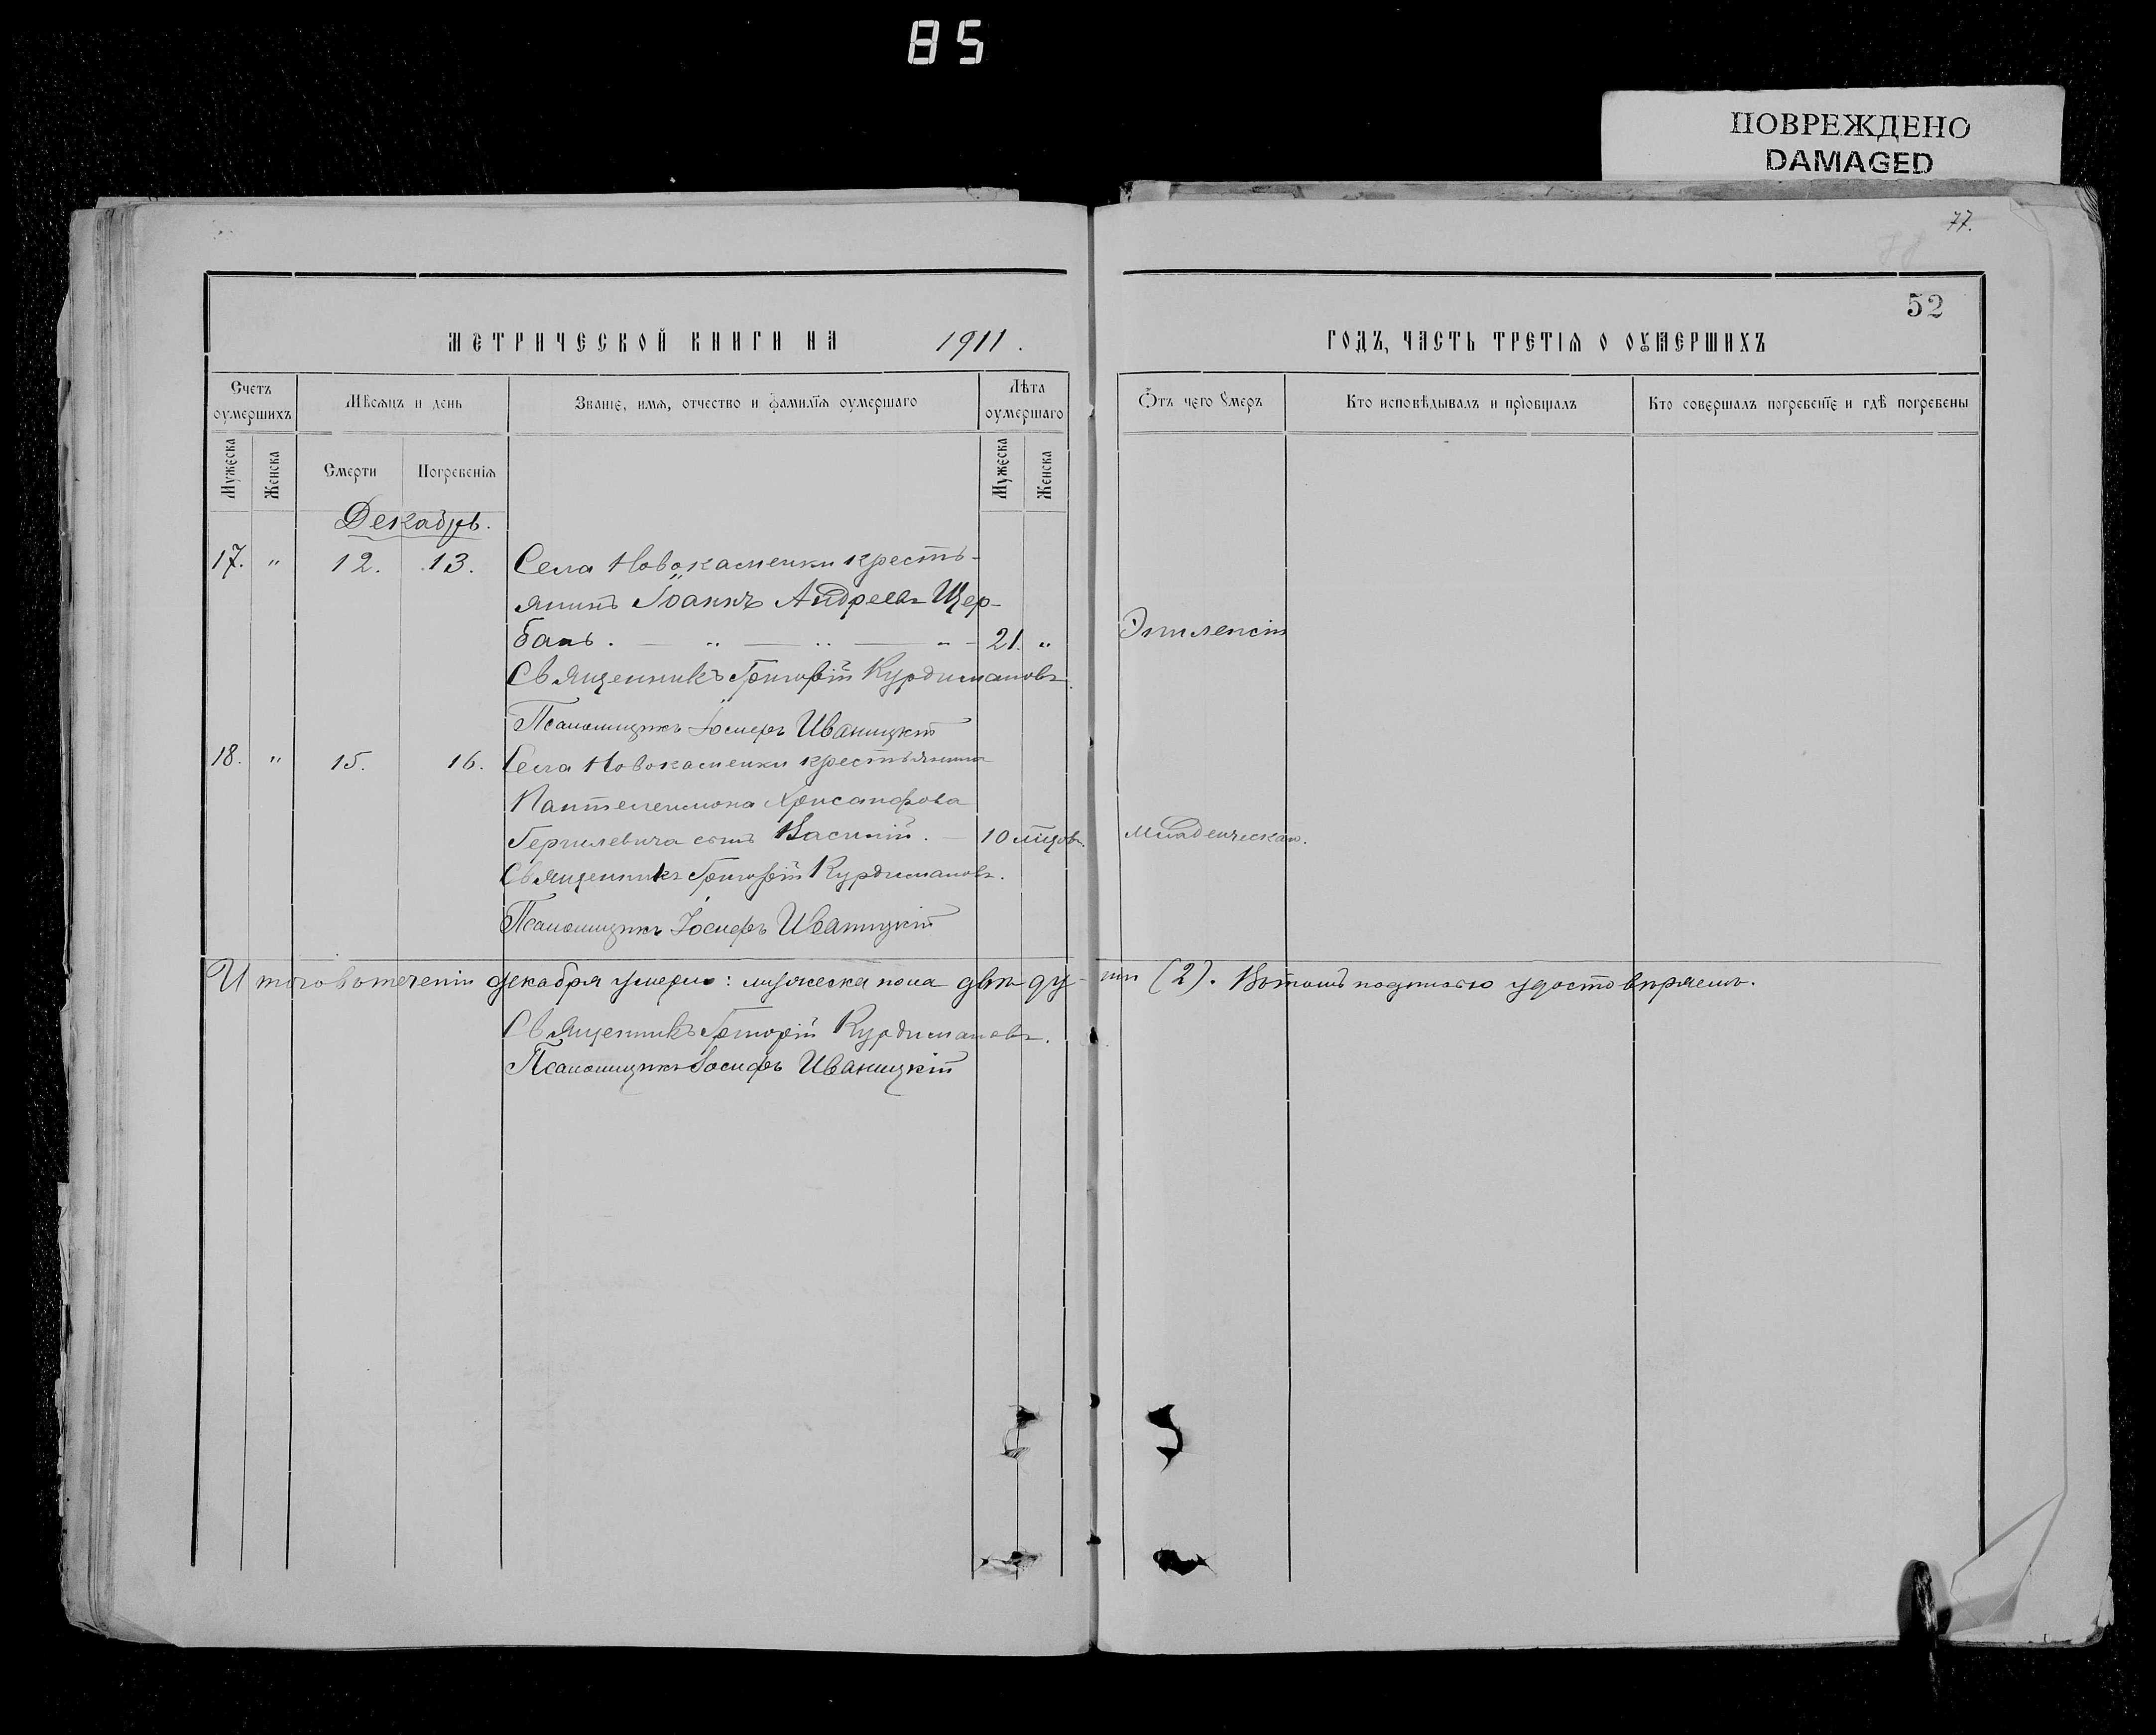 85
ПОВРЕЖДЕНО
DAMAGED
77.
78
52
МЕТРИЧЕСКОЙ КНИГИ НА 1911.
ГОДЪ, ЧАСТЬ ТРЕТІЯ О ОУМЕРШИХЪ
Счетъ оумершихъ
Мѣсяцъ и день
Званіе, имя, отчество и фамилія оумершаго
Лѣта оумершаго
Отъ чего умеръ
Кто исповѣдывалъ и пріобщалъ
Кто совершалъ погребеніе и гдѣ погребены
Мужеска
Женска
Смерти
Погребенія
Мужеска
Женска
Декабрь.
17. " 12. 13. Села Новокаменки кресть-
янинъ Іоаннъ Андреевъ Щер-
бань. — " — " — " — 21. " Эпилепсіи
Священникъ Григорій Курдимановъ.
Псаломщикъ Іосифъ Иваницкій
18. " 15. 16. Села Новокаменки крестьянина
Пантелеимона Хрисанфова
Гермлевича сынъ Василій. — 10 мѣсяцов. Младенческаю.
Священникъ Григорій Курдимановъ.
Псаломщикъ Іосифъ Иваницкій
Итого въ теченіи декабря умерло: мужеска пола двѣ ду-ши (2). Въ томъ подписью удостовѣряемъ.
Священникъ Григорій Курдимановъ.
Псаломщикъ Іосифъ Иваницкій